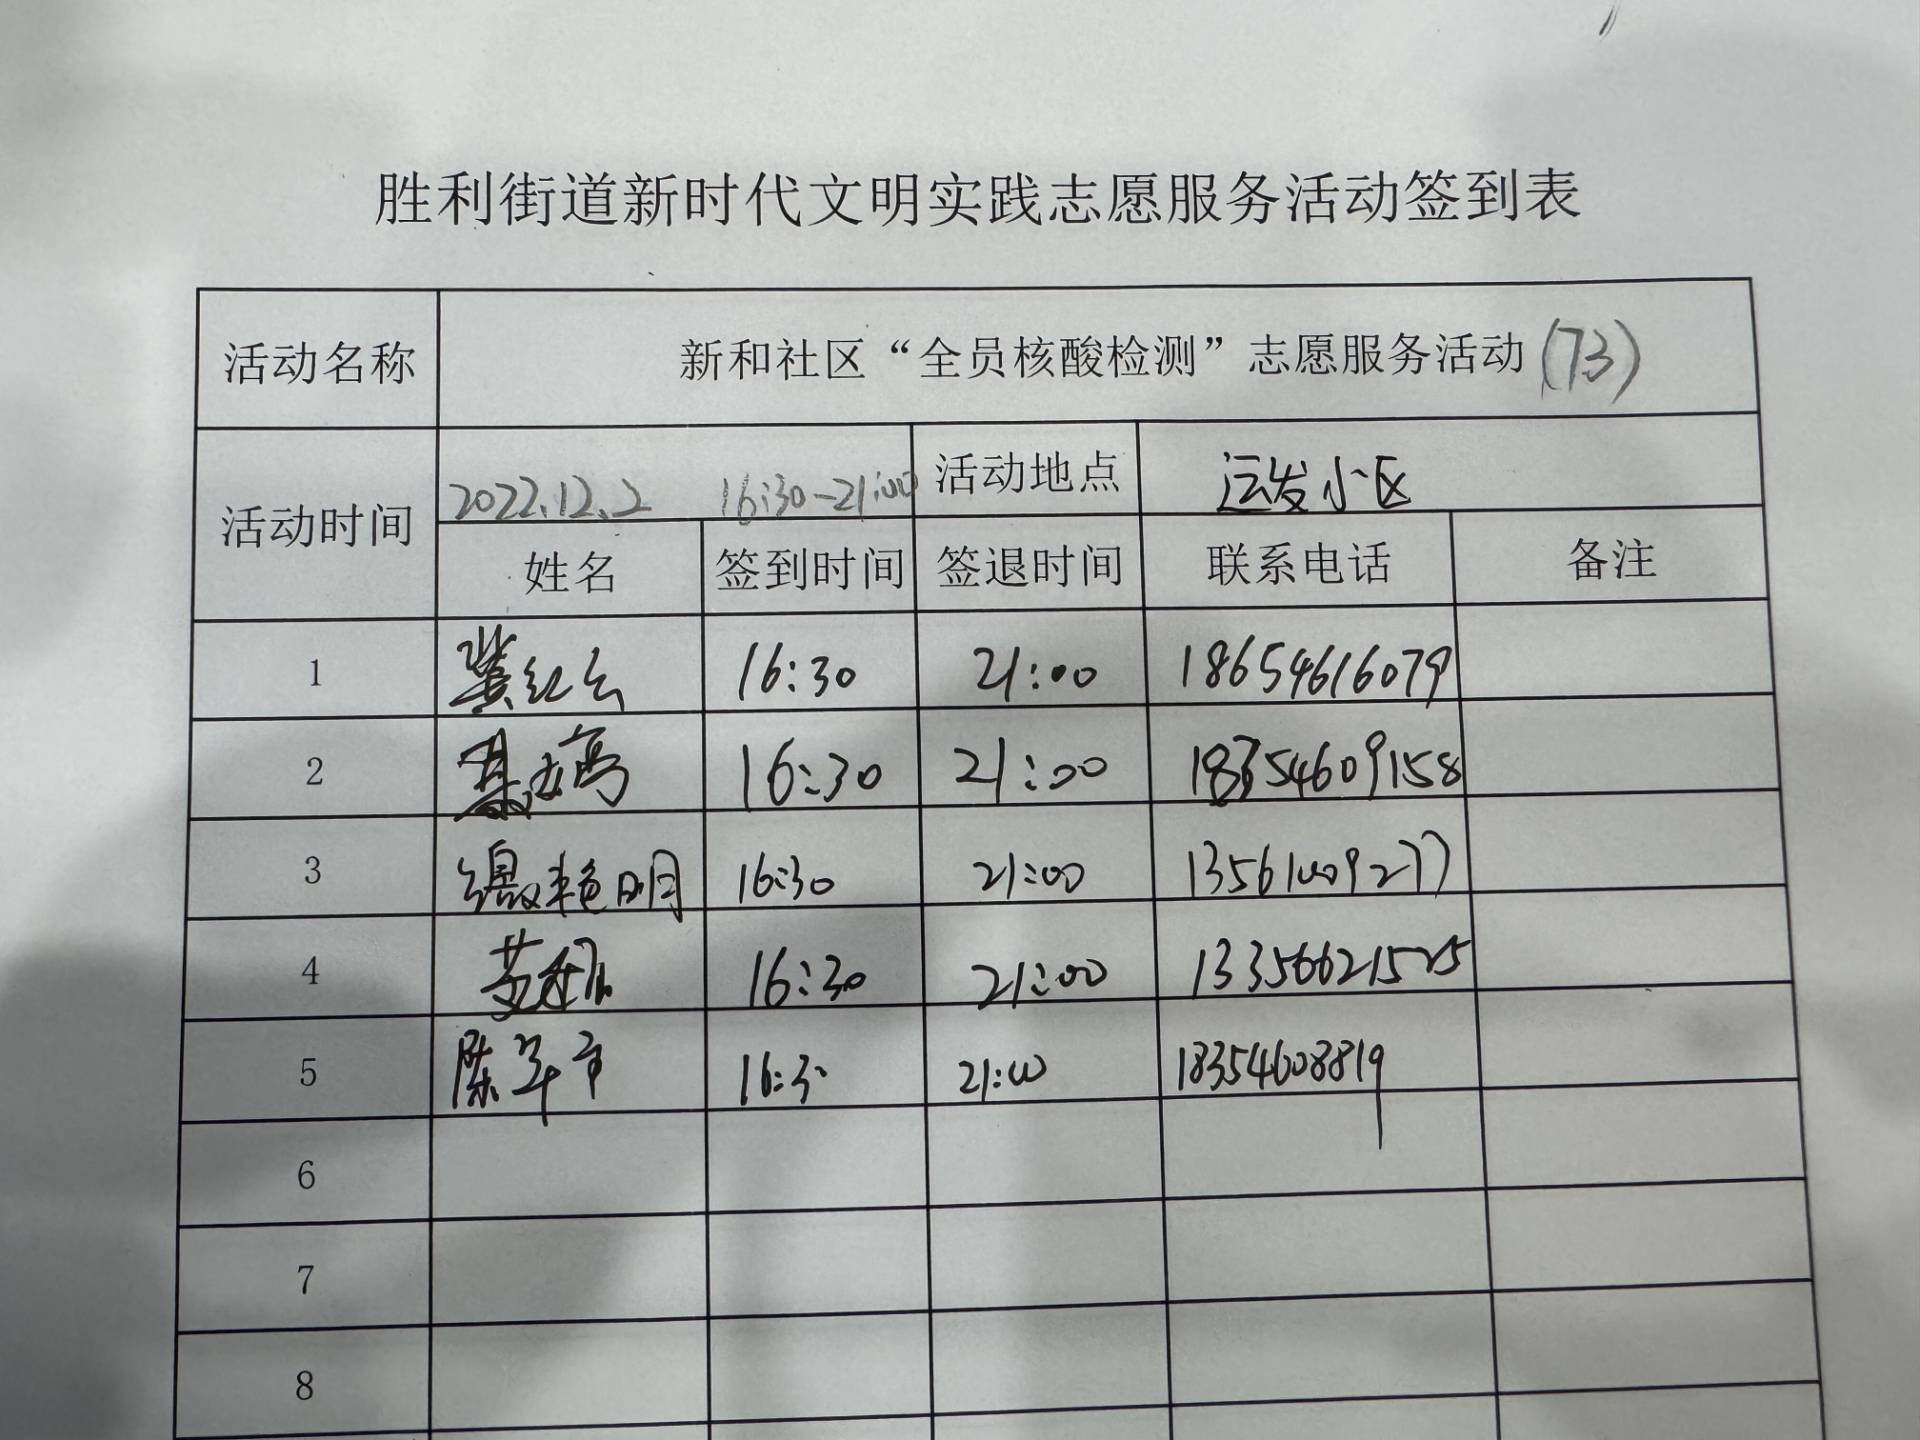 胜利街道新时代文明实践志愿服务活动签到表
活动名称 新和社区“全员核酸检测”志愿服务活动(73)
活动时间 2022.12.2 16:30-21:00 活动地点 运发小区
姓名 签到时间 签退时间 联系电话 备注
1 冀红云 16:30 21:00 18654616079
2 16:30 21:00 18354609158
3 缴艳明 16:30 21:00 13561009277
4 16:30 21:00 13356621525
5 陈军市 16:30 21:00 18354608819
6
7
8